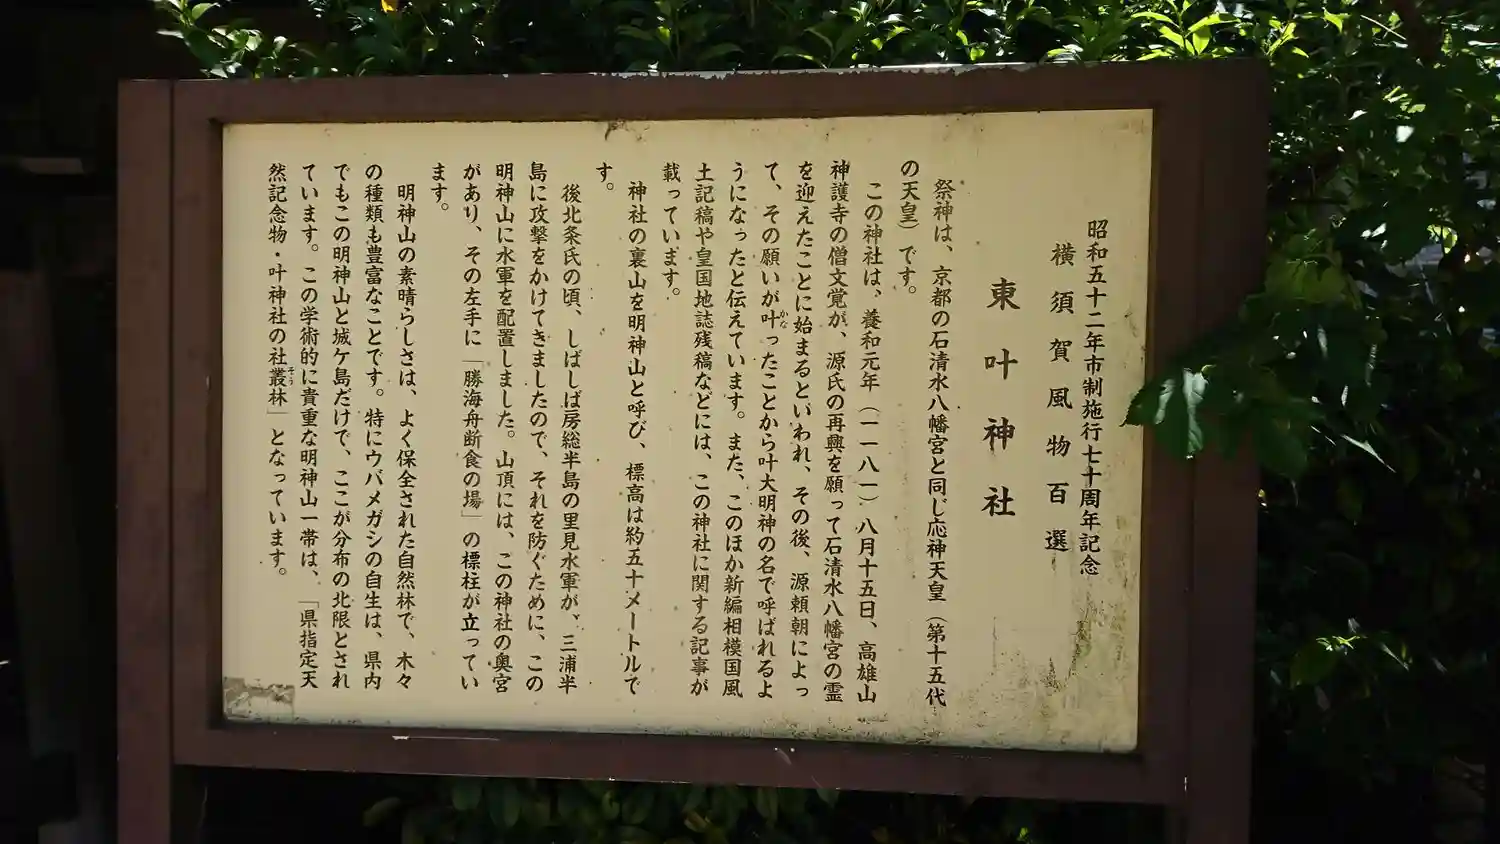 昭和五十二年市制施行七十周年記念
横須賀風物百選
東叶神社
祭神は、京都の石清水八幡宮と同じ応神天皇（第十五代
の天皇）です。
この神社は、養和元年（一一八一）八月十五日、高雄山
神護寺の僧文覚が、源氏の再興を願って石清水八幡宮の霊
を迎えたことに始まるといわれ、その後、源頼朝によっ
て、その願いが叶かなったことから叶大明神の名で呼ばれるよ
うになったと伝えています。また、このほか新編相模国風
土記稿や皇国地誌残稿などには、この神社に関する記事が
載っています。
神社の裏山を明神山と呼び、標高は約五十メートルで
す。
後北条氏の頃、しばしば房総半島の里見水軍が、三浦半
島に攻撃をかけてきましたので、それを防ぐために、この
明神山に水軍を配置しました。山頂には、この神社の奥宮
があり、その左手に「勝海舟断食の場」の標柱が立ってい
ます。
明神山の素晴らしさは、よく保全された自然林で、木々
の種類も豊富なことです。特にウバメガシの自生は、県内
でもこの明神山と城ケ島だけで、ここが分布の北限とされ
ています。この学術的に貴重な明神山一帯は、「県指定天
然記念物・叶神社の社叢そう林」となっています。